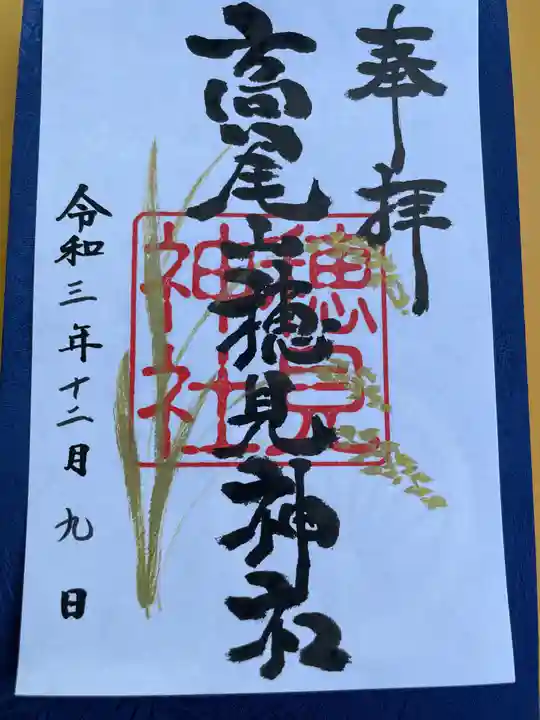 奉拝
高尾山穂見神社
穂見
神社
令和三年十二月九日